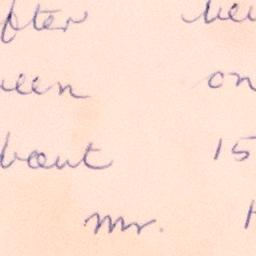 fter
een on
bout 15
Mr.